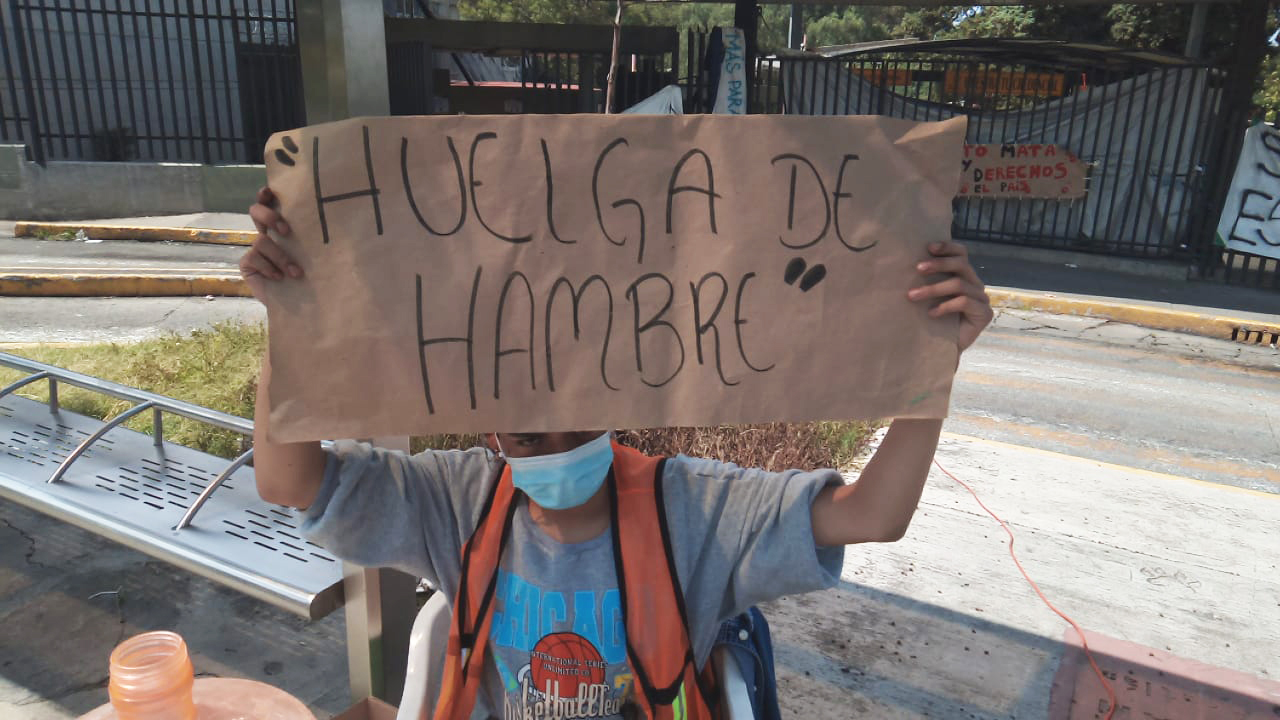 "HUELGA DE
HAMBRE"
MÁS PAR
TO MATA
Y DERECHOS
EL PAIS
ES
CHICAG
INTERNATIONAL SERIES
UNLIMITED CO